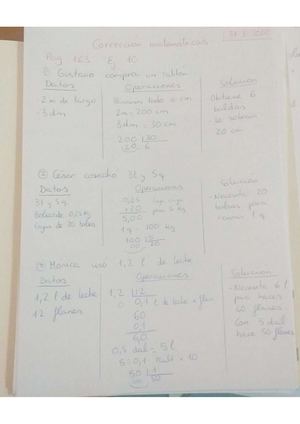 Corrección matemáticas
Pag 163 Ej 10
① Gustavo compra un tablón
Datos
2 m de largo
- 3 dm
Operaciones
Pasamos todo a cm
2 m = 200 cm
3 dm = 30 cm
200 30
20 6
Solución
Obtiene 6
baldas
- le sobran
20 cm
② César cosechó 3 t y 5 q
Datos
3 t y 5 q
Operaciones
0,25
×20
5,00
1 q = 100 kg
100
Solución
- Necesita 20
bolsas para
1 q
Monica usó 1,2 l de leche
Datos
1,2 l de leche
12 flanes
Operaciones
1,2 12
0 0,1 l de leche x flan
60
0,1
6,0
0,5 dal = 5 l
5 : 0,1 x 10
50 1
50
Solución
- Necesita 6 l
para hacer
60 flanes
- Con 5 dal
hace 50 flanes